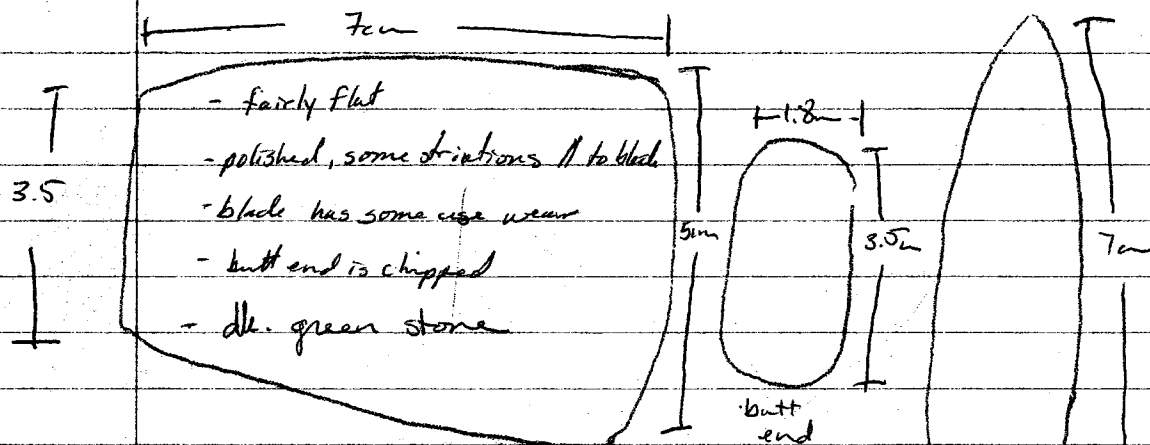 7cm
- fairly flat
- polished, some striations // to blade
- blade has some use wear
- butt end is chipped
- dk. green stone
3.5
5cm
1.8cm
3.5cm
butt
end
7cm